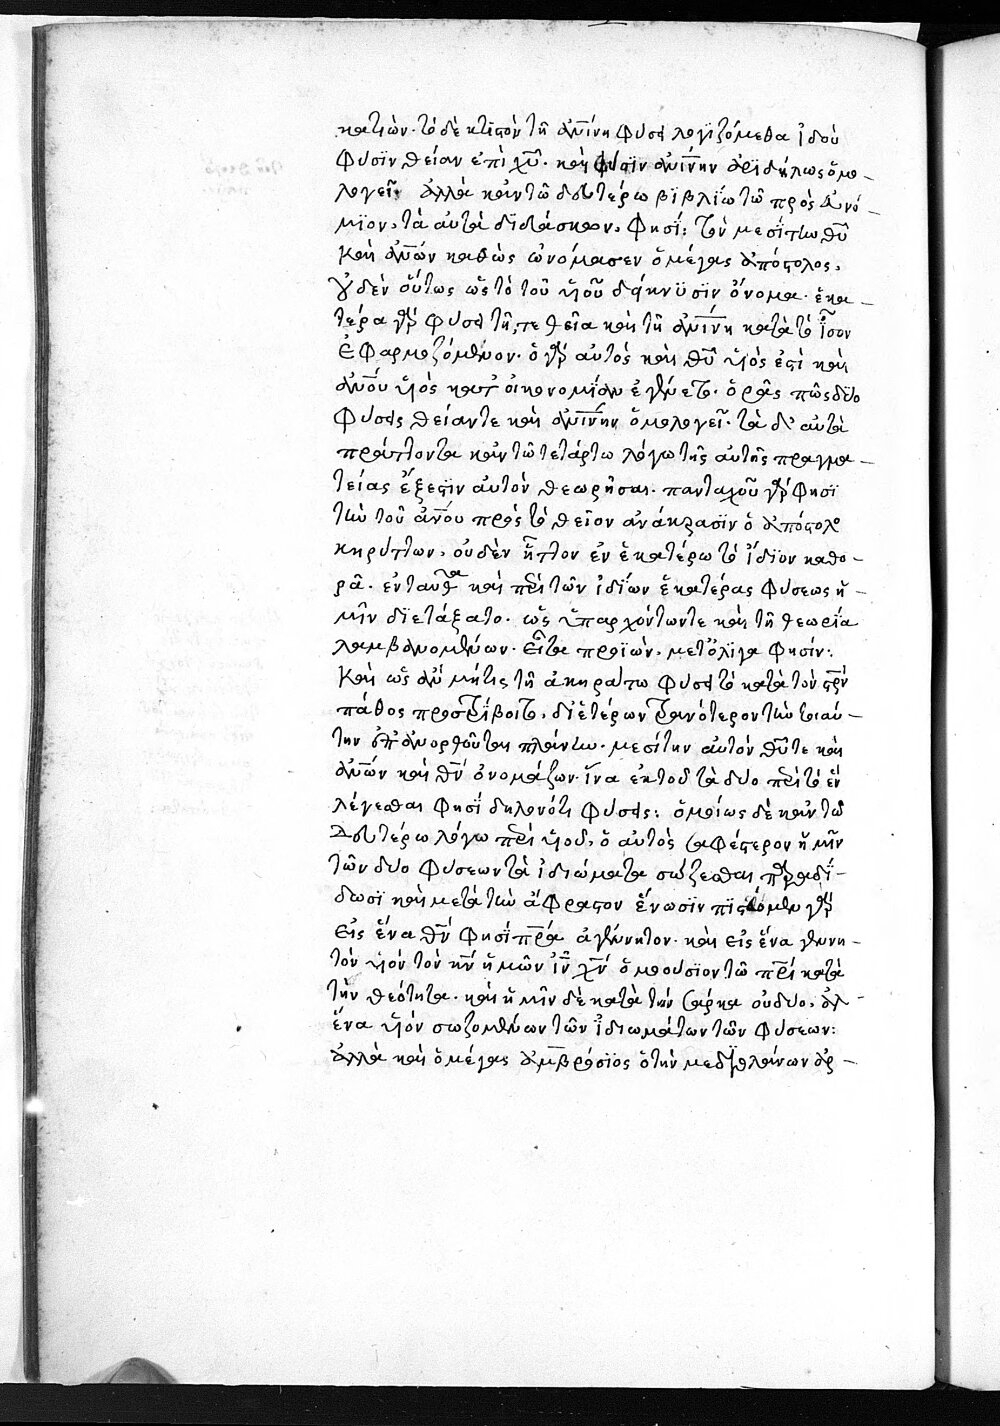 κατιών· τὸ δὲ κτιστὸν τῆ ἀνίνη φύσει λογιζόμεθα ἰδοὺ
φύσϊν θείαν ἐπὶ χυ̅· καὶ φύσϊν ἀνίνην ἀριδήλως ὁμο-
λογεῖ· ἀλλὰ κἀν τῶ δευτέρω βϊβλίω τῶ πρὸς εὐνό-
μϊον, τὰ αὐτὰ δϊδάσκων, φησΐ: τὸν μεσίτην θυ̅
καὶ ἀνῶν καθὼς ὠνόμασεν ὁ μέγας ἀπόστολος,
οὐδὲν οὕτως ὡς τὸ τοῦ υἱοῦ δείκνϋσϊν ὄνομα· ἑκα-
τέρα γὰρ φύσει τῆ, τε θεία καὶ τῆ ἀνίνη κατὰ τὸ ἶσον
ἐφαρμοζόμενον· ὁ γὰρ αὐτὸς καὶ θυ̅ υἱός ἐστὶ καὶ
ἀνου υἱὸς κατ' οἰκονομΐαν ἐγένετο· ὁρᾶς πῶς δύο
φύσεις θείαν τε καὶ ἀνίνην ὁμολογεῖ· τὰ δ' αὐτὰ
πράττοντα κἀν τῶ τετάρτω λόγω τῆς αὐτῆς πραγμα-
τείας ἔξεστϊν αὐτὸν θεωρῆσαι· πανταχοῦ γὰρ φησΐ
τὴν τοῦ ἀνου πρὸς τὸ θεῖον ἀνάκρασϊν ὁ ἀπόστολο
κηρύττων, οὐδὲν ἧττον ἐν ἑκατέρω τὸ ἴδϊον καθο-
ρᾶ· ἐνταῦθα καὶ περὶ τῶν ἰδίων ἑκατέρας φύσεως ἡ-
μῖν δϊετάξατο· ὡς ὑπαρχόντων τε καὶ τῆ θεωρία
λαμβανομένων· εἶτα προϊών, μετ' ὀλίγα φησίν:
καὶ ὡς ἂν μήτις τῆ ἀκηράτω φύσει τὸ κατὰ τὸν σρν
πάθος προστρίβοιτο, δϊ' ἑτέρων τρανότερον τὴν τοιαύ-
την ἐπανορθοῦται πλάνην· μεσίτην αὐτὸν θυ̅ τε καὶ
ἀνῶν καὶ θν̅ ὀνομάζων· ἵνα ἐκ τοῦ τὰ δύο περὶ τὸ ἓν
λέγεσθαι φησΐ δηλονότι φύσεις: ὁμοίως δὲ κἀν τῶ
δευτέρω λόγω περὶ υἱοῦ, ὁ αὐτὸς σαφέστερον ἡμῖν
τῶν δύο φύσεων τὰ ἰδιώματα σώζεσθαι παραδΐ-
δωσϊ καὶ μετὰ τὴν ἄφραστον ἕνωσϊν πϊστεύομεν γὰρ
εἰς ἕνα θν̅ φησΐ πρα ἀγέννητον· καὶ εἰς ἕνα γεννη-
τὸν υἱὸν τὸν κν̅ ἡμῶν ἰν̅ χν̅ ὁμοούσϊον τῶ πρι κατὰ
τὴν θεότητα· καὶ ἡμῖν δὲ κατὰ τὴν σάρκα οὐ δύο, ἀλλ'-
ἕνα υἱὸν σωζομένων τῶν ἰδιωμάτων τῶν φύσεων:
ἀλλὰ καὶ ὁ μέγας ἀμβρόσϊος ὁ τὴν μεδιολάνων ἀρ-